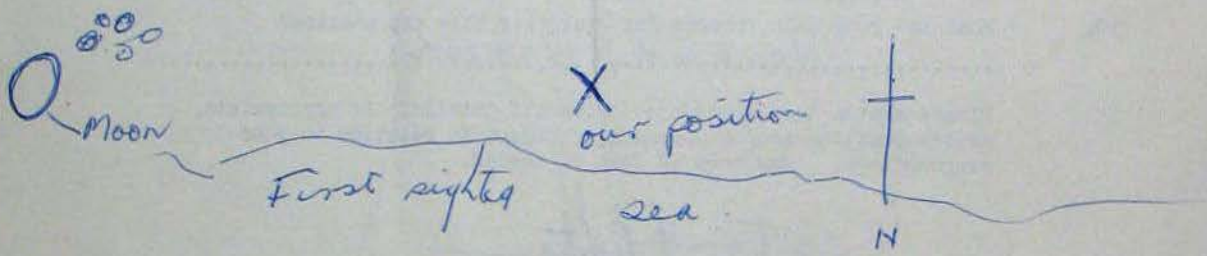 Moon
X
our position
First sighted
sea.
N